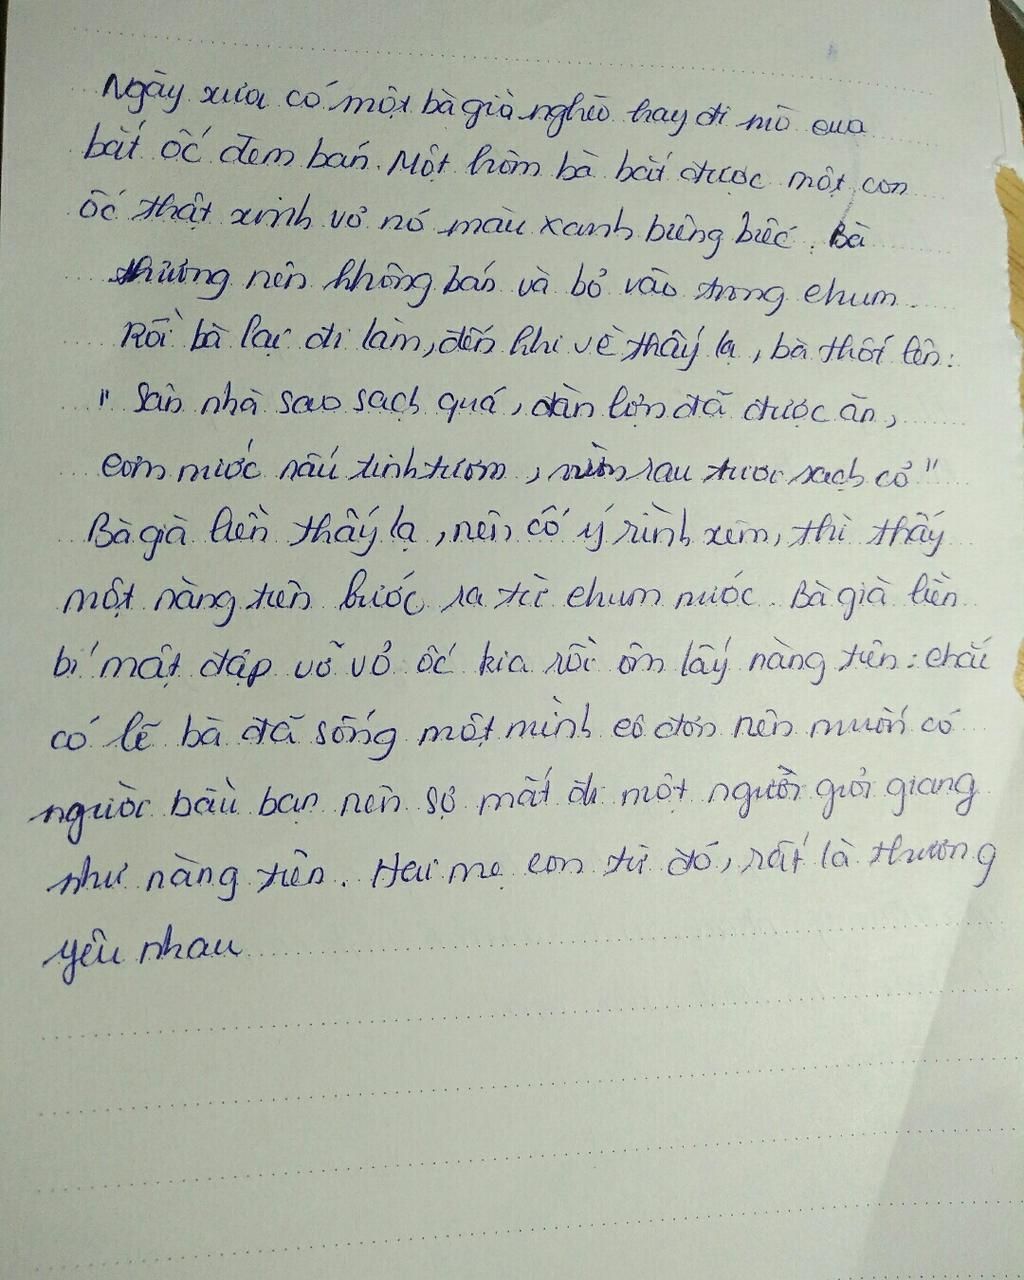 Ngày xưa có một bà già nghèo hay đi mò cua
bắt ốc đem bán. Một hôm bà bắt được một con
ốc thật xinh vỏ nó màu xanh biêng biếc. Bà
thương nên không bán và bỏ vào trong chum.
Rồi bà lại đi làm, đến khi về thấy lạ, bà thốt lên:
" Sân nhà sao sạch quá, đàn lợn đã được ăn,
cơm nước nấu tinh tươm, vườn rau tươi sạch cỏ "
Bà già liền thấy lạ, nên cố ý rình xem, thì thấy
một nàng tiên bước ra từ chum nước. Bà già liền
bí mật đập vỡ vỏ ốc kia rồi ôm lấy nàng tiên: chắc
có lẽ bà đã sống một mình cô đơn nên muốn có
người bầu bạn nên sợ mất đi một người giỏi giang
như nàng tiên. Hai mẹ con từ đó, rất là thương
yêu nhau